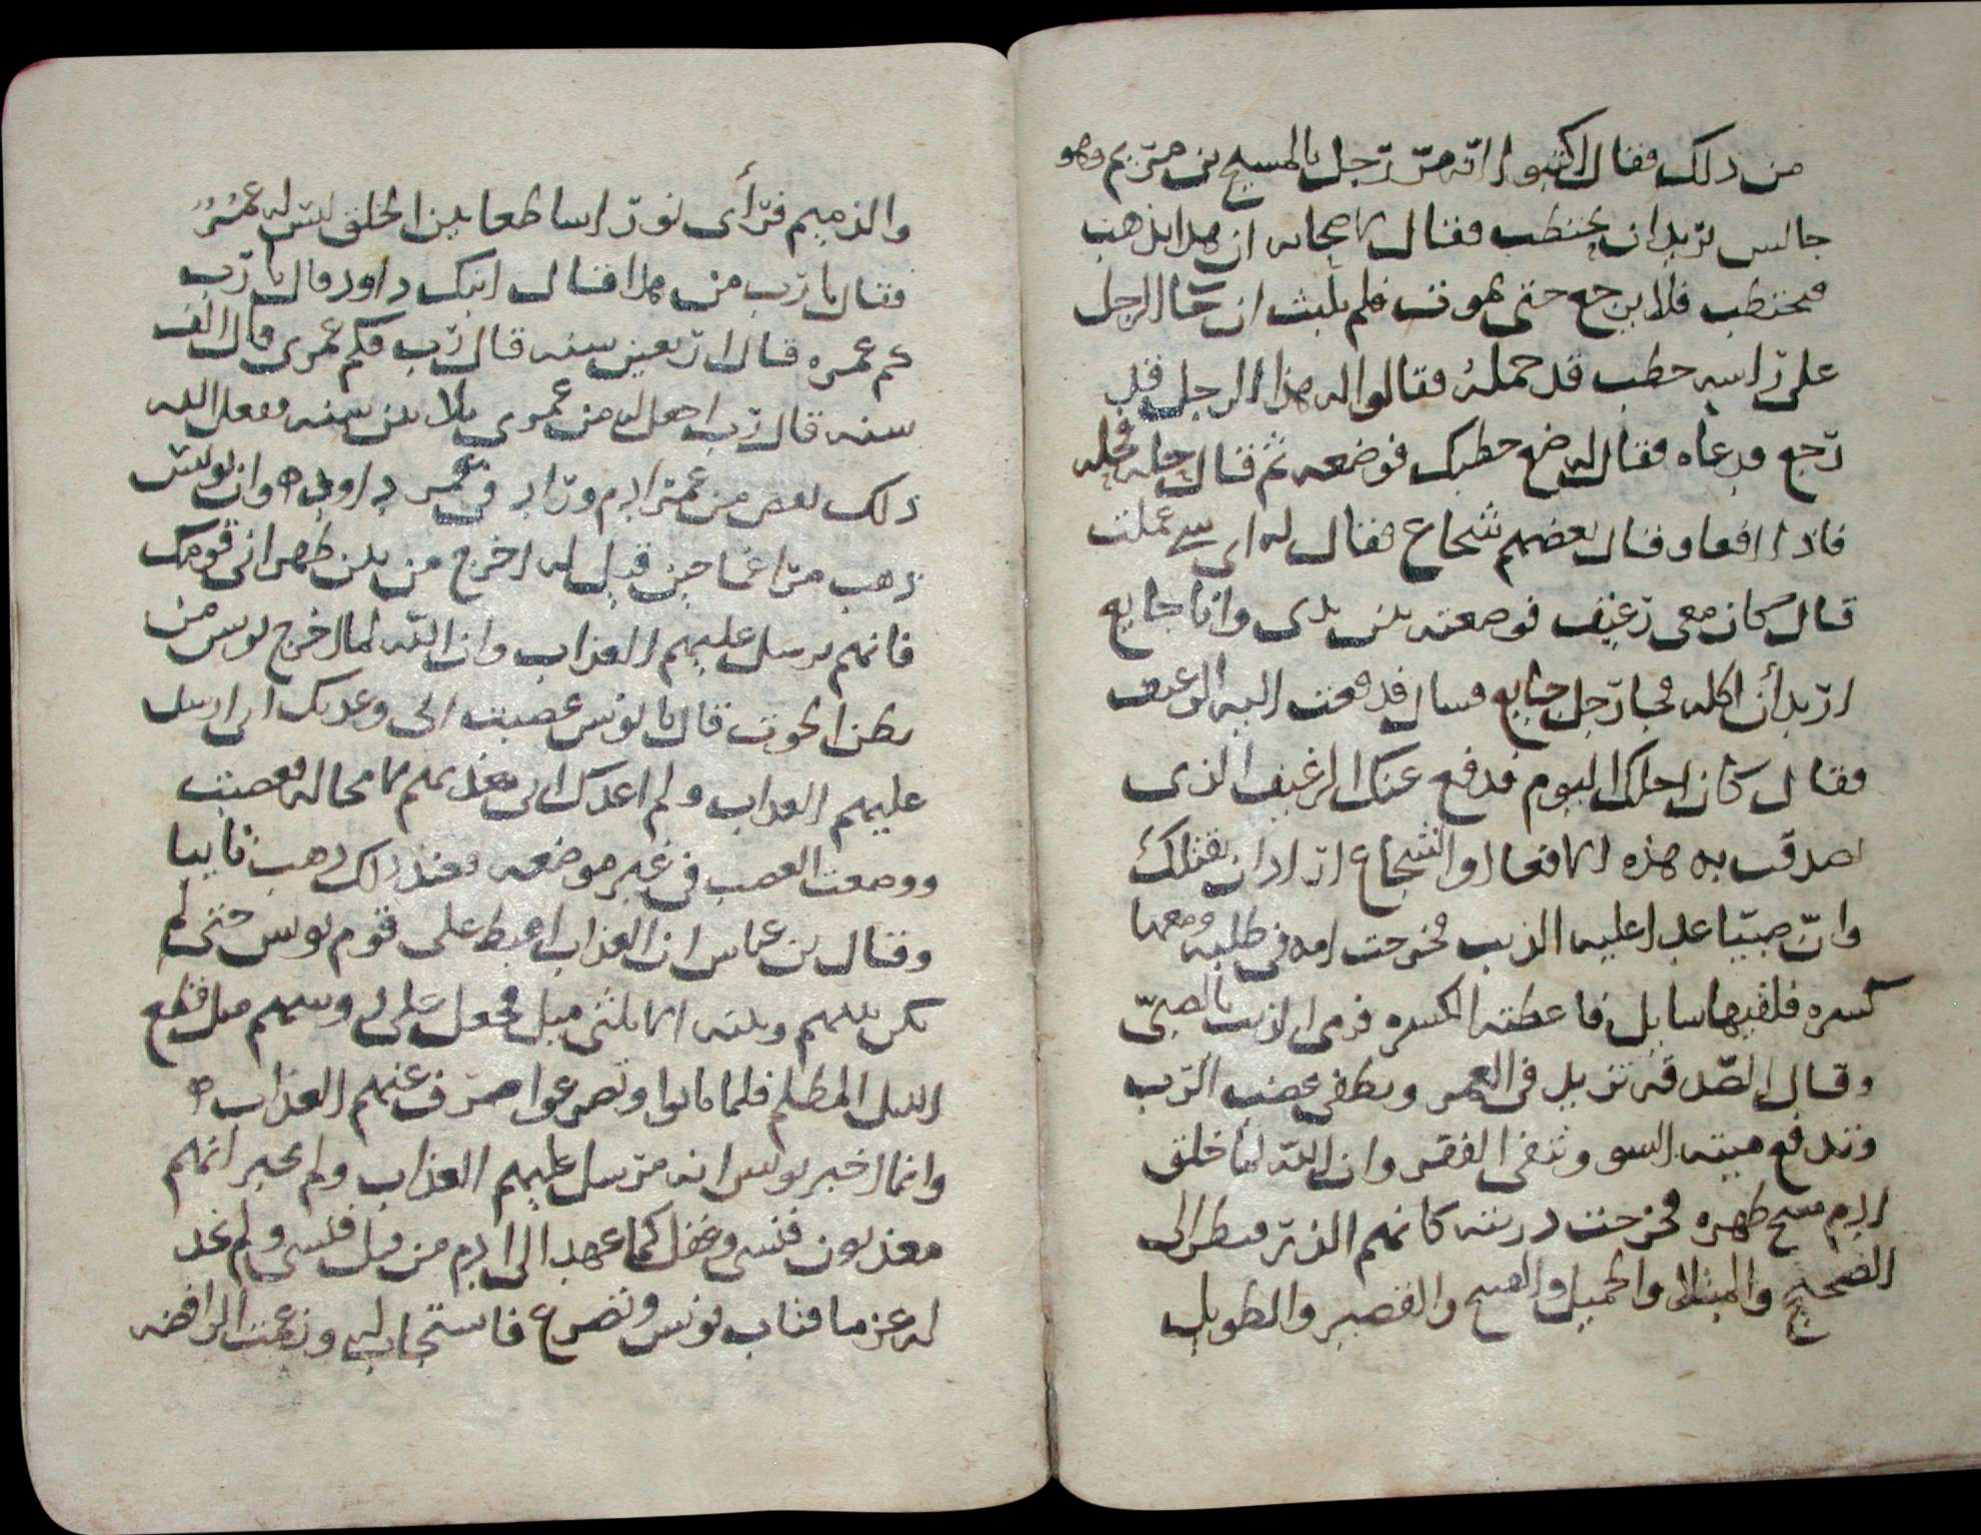 من ذلك فقال اكتبوا انه مر رجل بالمسيح بن مريم وهو
جالس يريد ان يحتطب فقال لاصحابه ان هذا يذهب
فيحتطب فلا يرجع حتى يموت فلم يلبث ان جا الرجل
على راسه حطب قد حمله فقالوا له هذا الرجل قد
رجع فدعاه فقال له ضع حطبك فوضعه ثم قال حله فحله
فاذا افعا وقال بعضهم شجاع فقال له اى شى عملت
قال كان معى رغيف فوضعته بين يدى وانا جايع
اريد أن اكله فجا رجل جايع فسال فدفعت اليه الرغيف
فقال كان اجلك اليوم فدفع عنك الرغيف الذى
تصدقت به هذه الافعا او الشجاع اراد ان يقتلك
وان صبيا عدا عليه الذيب فخرجت امه فى طلبه ومعها
كسره فلقيها سايل فاعطته الكسره فرمى الذيب بالصبى
وقال الصدقه تزيد فى العمر وتطفى غضب الرب
وتدفع ميته السو وتنفى الفقر وان الله لما خلق
ادم مسح ظهره فخرجت دريته كانهم الذر فنظر الى
الصحيح والمبتلا والجميل والقبيح والقصير والطويل
والذميم فرأى نورا ساطعا بين الخلق ليس له عمر
فقال يا رب من هذا قال ابنك داود قال يا رب
كم عمره قال اربعين سنه قال رب فكم عمرى قال الف
سنه قال رب اجعل له من عمرى ثلاثين سنه ففعل الله
ذلك نقص من عمر ادم وزاد فى عمر داود ه وان يونس
ذهب مراغما حين قيل له اخرج من بين ظهرانى قومك
فانهم يرسل عليهم العذاب وان الله لما اخرج يونس من
بطن الحوت قال يا يونس عصيت انى وعدتك انى ارسل
عليهم العذاب ولم اعدك انى معذبهم لا محاله فعصيت
ووضعت الغضب فى غير موضعه فعند ذلك ذهب تايبا
وقال بن عباس ان العذاب اهبط على قوم يونس حتى لم
يكن بينهم وبينه الا ثلثى ميل فجعل على روسهم مثل قطع
الليل المظلم فلما تابوا وتضرعوا صرف عنهم العذاب ه
وانما اخبر يونس انه مرسل عليهم العذاب ولم يخبر انهم
معذبون فنسى وغفل كما عهد الى ادم من قبل فنسى ولم نجد
له عزما فتاب يونس وتضرع فاستجاب له وزعمت الرافضه